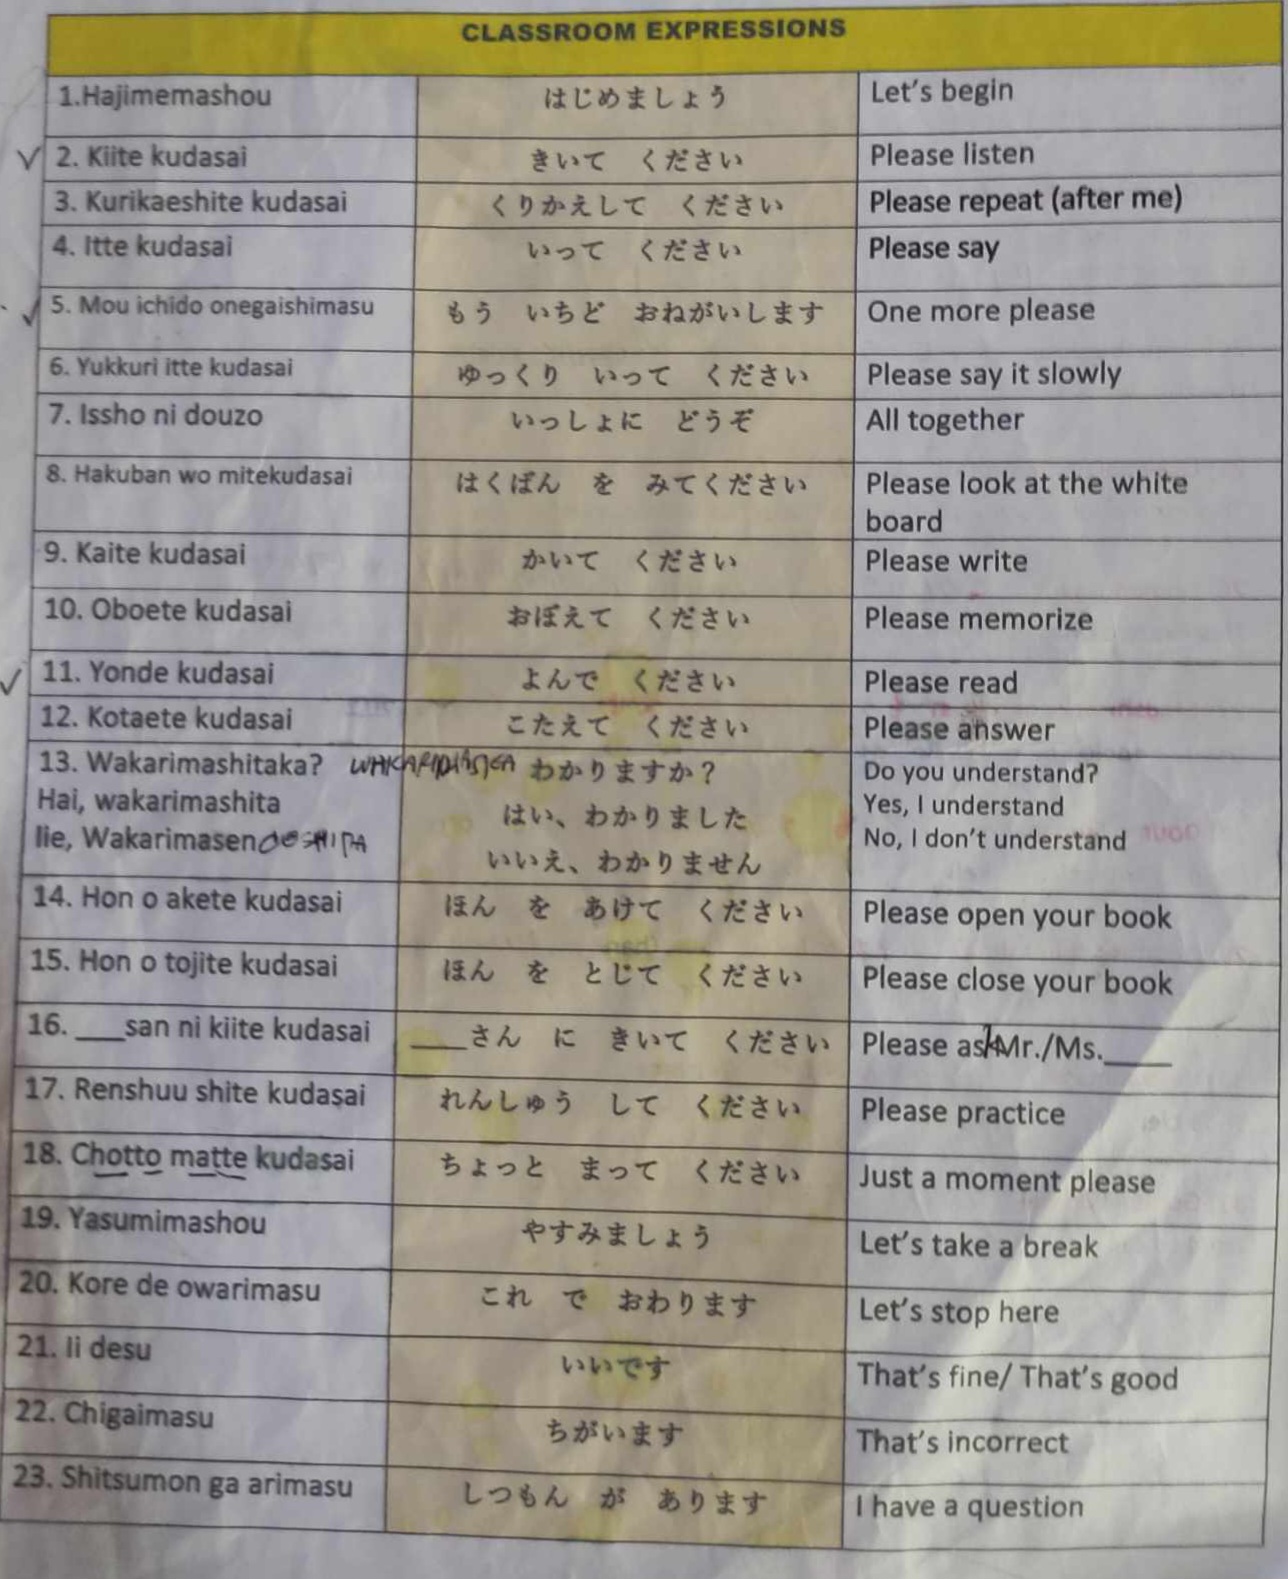 CLASSROOM EXPRESSIONS
1.Hajimemashou はじめましょう Let's begin
2. Kiite kudasai きいて ください Please listen
3. Kurikaeshite kudasai くりかえして ください Please repeat (after me)
4. Itte kudasai いって ください Please say
5. Mou ichido onegaishimasu もう いちど おねがいします One more please
6. Yukkuri itte kudasai ゆっくり いって ください Please say it slowly
7. Issho ni douzo いっしょに どうぞ All together
8. Hakuban wo mitekudasai はくばん を みてください Please look at the white
board
9. Kaite kudasai かいて ください Please write
10. Oboete kudasai おぼえて ください Please memorize
11. Yonde kudasai よんで ください Please read
12. Kotaete kudasai こたえて ください Please answer
13. Wakarimashitaka? わかりますか？ Do you understand?
Hai, wakarimashita はい、わかりました Yes, I understand
Iie, Wakarimasen いいえ、わかりません No, I don't understand
14. Hon o akete kudasai ほん を あけて ください Please open your book
15. Hon o tojite kudasai ほん を とじて ください Please close your book
16. ___san ni kiite kudasai ___さん に きいて ください Please ask Mr./Ms.____
17. Renshuu shite kudasai れんしゅう して ください Please practice
18. Chotto matte kudasai ちょっと まって ください Just a moment please
19. Yasumimashou やすみましょう Let's take a break
20. Kore de owarimasu これ で おわります Let's stop here
21. Ii desu いいです That's fine/ That's good
22. Chigaimasu ちがいます That's incorrect
23. Shitsumon ga arimasu しつもん が あります I have a question